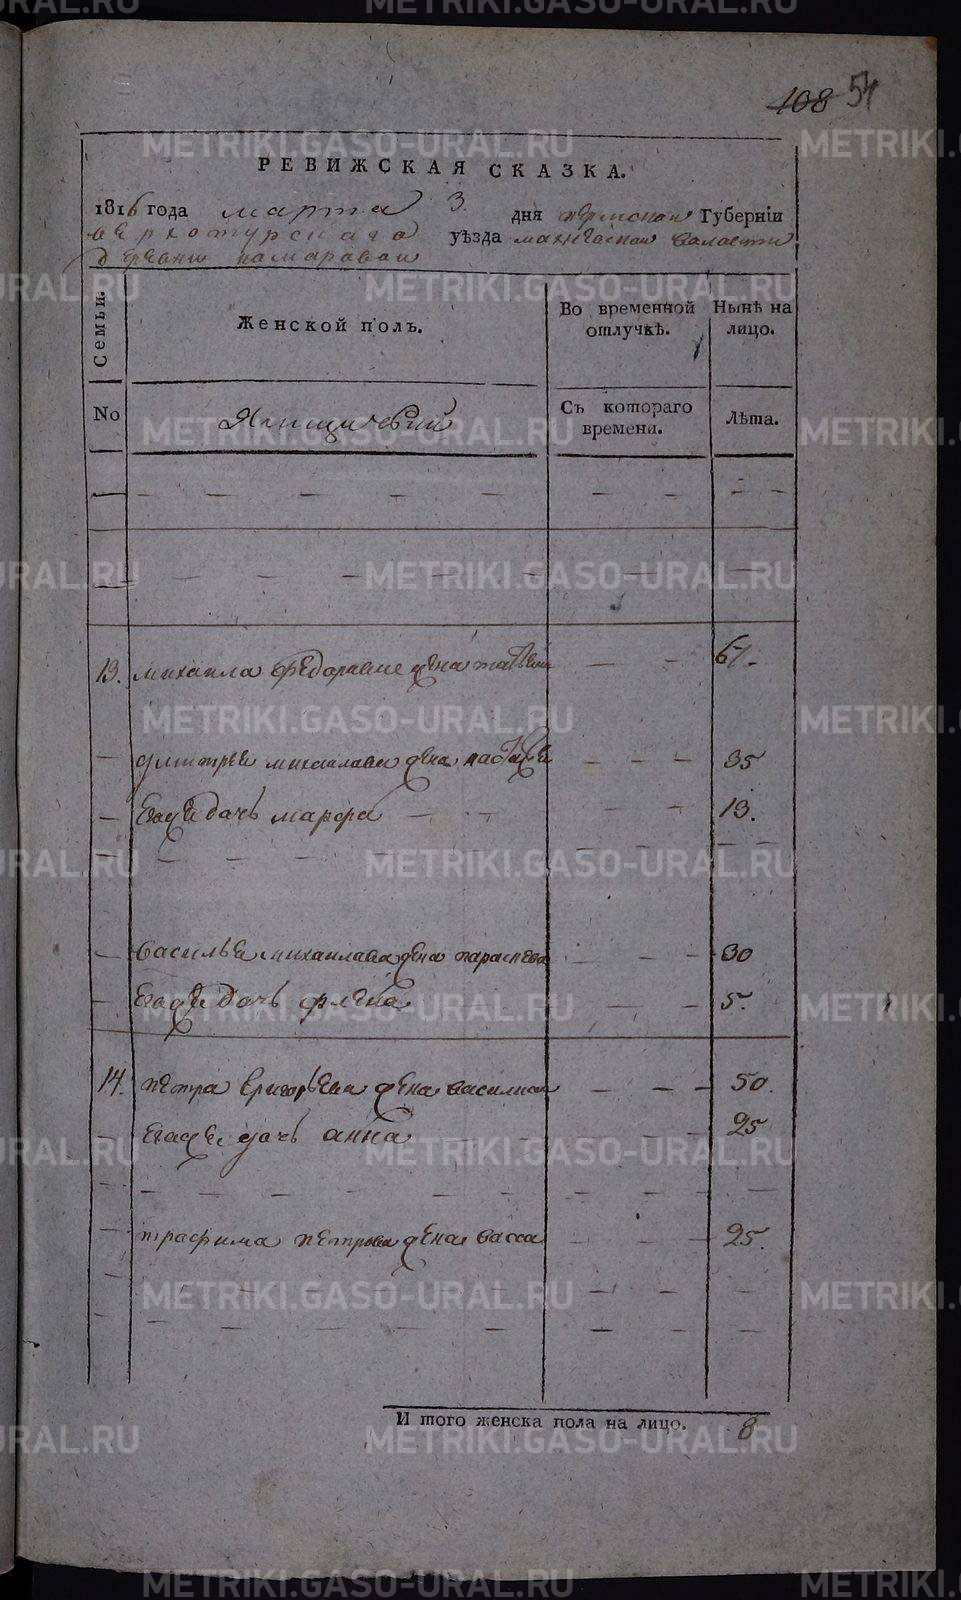 108 54
РЕВИЖСКАЯ СКАЗКА.
1816 года марта 3. дня пермской Губернїи
верхотурскаго уѣзда махневской валости
деревни камаравай
Семьи. Женской полъ. Во временной отлучкѣ. Нынѣ на лицо.
No Ямщичьей Съ котораго времени. Лѣта.
13. михаила федоравие жена 67.
дмитрея михаилава жена настасья 35
Егаже дачь марфа 13.
василья михаилава жена параскева 30
Егаже дачь 5.
14. петра Григорьева жена василиса 50.
Егаже дачь анна 25
трафима петрова жена васса 25.
И того женска пола на лицо. 8
METRIKI.GASO-URAL.RU